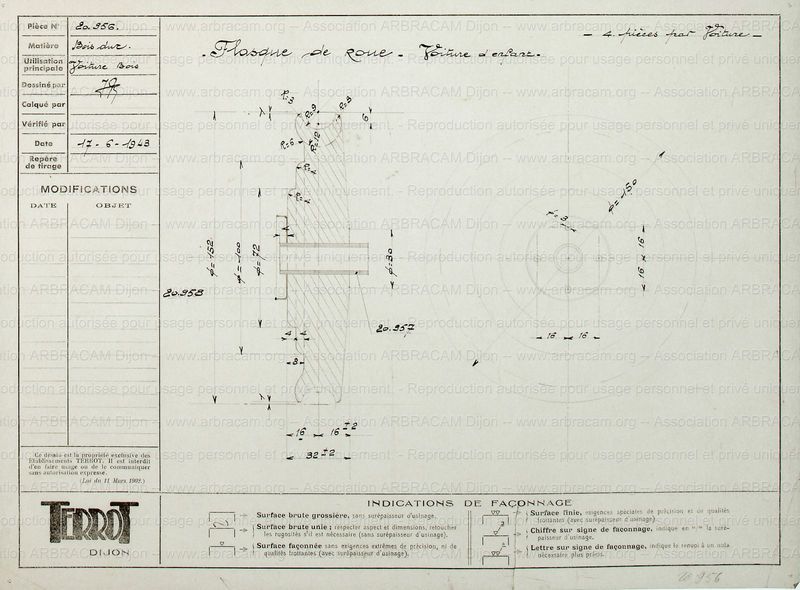 Pièce N° 20.956.
Matière Bois dur.
Utilisation principale Voiture Bois
Dessiné par
Calqué par
Vérifié par
Date 17-6-1943
Repère de tirage
MODIFICATIONS
DATE OBJET
- Flasque de roue - Voiture d'enfant -
- 4 pièces par Voiture -
R=3
R=9
R=8
6
R=6
R=12
φ=152
φ=100
φ=72
φ=30
20.958
20.957
4 4
8
16 16 ±2
32 ±2
φ=150
16 × 16
16 16
Ce dessin est la propriété exclusive des
Etablissements TERROT. Il est interdit
d'en faire usage ou de le communiquer
sans autorisation expresse.
(Loi du 11 Mars 1902.)
TERROT
DIJON
INDICATIONS DE FAÇONNAGE
Surface brute grossière, sans surépaisseur d'usinage.
Surface brute unie ; respecter aspect et dimensions, retoucher
les rugosités s'il est nécessaire (sans surépaisseur d'usinage).
Surface façonnée sans exigences extrêmes de précision, ni de
qualités frottantes (avec surépaisseur d'usinage).
Surface finie, exigences spéciales de précision et de qualités
frottantes (avec surépaisseur d'usinage).
Chiffre sur signe de façonnage, indique en m/m la suré-
paisseur d'usinage.
Lettre sur signe de façonnage, indique le renvoi à un nota
nécessaire plus précis.
20 956
www.arbracam.org -- Association ARBRACAM Dijon -- Reproduction autorisée pour usage personnel et privé uniquement